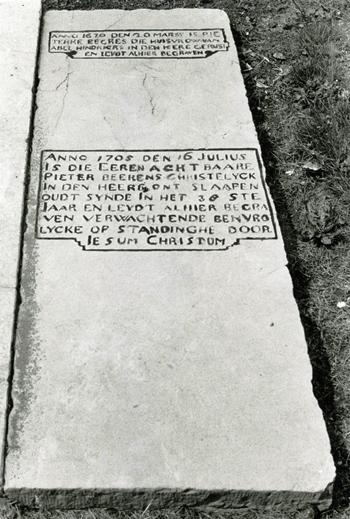 ANNO 1670 DEN 20 MARTY IS PIE
TERKE BEERES DIE HUISVROU VAN
ABEL HINDRICKS IN DEN HEERE GERUST
EN LEYDT ALHIER BEGRAVEN
ANNO 1705 DEN 16 JULIUS
IS DIE EERENACHTBAARE
PIETER BEERENS CHRISTELYCK
IN DEN HEERE ONT SLAAPEN
OUDT SYNDE IN HET 38 STE
JAAR EN LEYDT ALHIER BEGRA
VEN VERWACHTENDE EEN VRO
LYCKE OP STANDINGHE DOOR
JESUM CHRISTUM